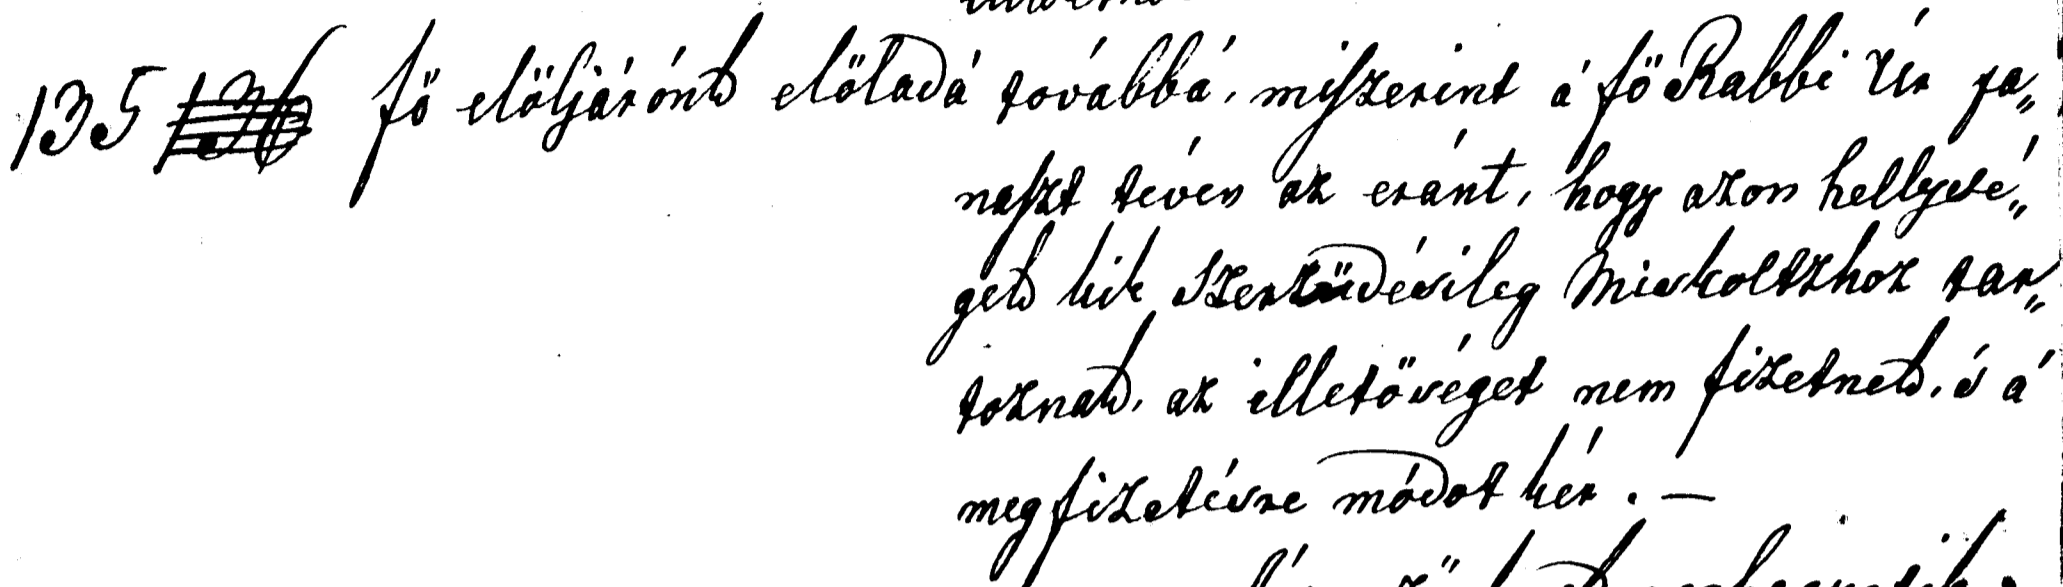 135 136 fő előljárónk előladá továbbá, miszerint á fő Rabbi Úr pa„
naszt tévén az eránt, hogy azon hellysé„
gek kik szerződésileg Miskoltzhoz tar„
toznak, az illetőséget nem fizetnek, s á
megfizetésre módot kér. —